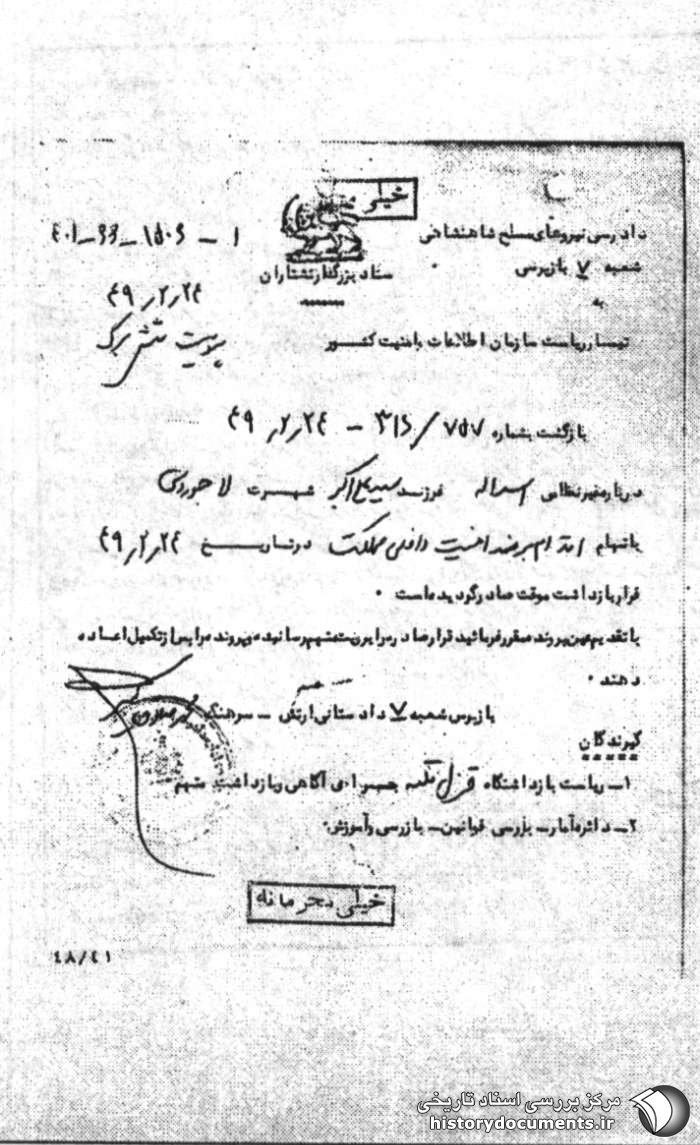 خیلی
دادرسی نیروهای مسلح شاهنشاهی
۴۰۱-۶۶-۱۵۰۶ - ۱
شعبه ۷ بازپرسی
ستاد بزرگ ارتشتاران
به
۴۹٫۲٫۲۴
تیمسار ریاست سازمان اطلاعات و امنیت کشور
پیوست شش برگ
بازگشت بشماره ۷۵۷/۳۱۶ - ۴۹٫۲٫۲۴
درباره غیرنظامی اسداله فرزند سید علی اکبر شهرت لاجوردی
باتهام اقدام بر ضد امنیت داخلی مملکت در تاریخ ۴۹٫۲٫۲۴
قرار بازداشت موقت صادر گردیده است .
با تقدیم عین پرونده مقرر فرمائید قرار صادره را برویت متهم رسانیده و پرونده را پس از تکمیل اعاده
دهند .
بازپرس شعبه ۷ دادستانی ارتش - سرهنگ
گیرندگان
۱- ریاست بازداشتگاه قزل قلعه بهمراه آگاهی و بازداشت متهم
۲- دائره آمار - بررسی قوانین - بازرسی و آموزش.
خیلی محرمانه
۴۸/۴۱
مرکز بررسی اسناد تاریخی
historydocuments.ir